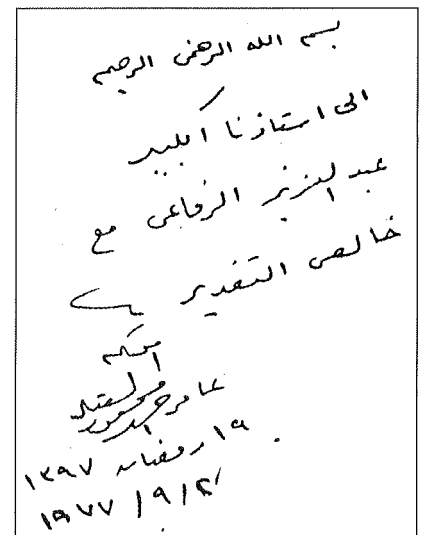 بسم الله الرحمن الرحيم
الى استاذنا الكبير
عبد العزيز الرفاعى مع
خالص التقدير
عامر العقاد
١٩ رمضان ١٣٩٧
١٩٧٧/٩/